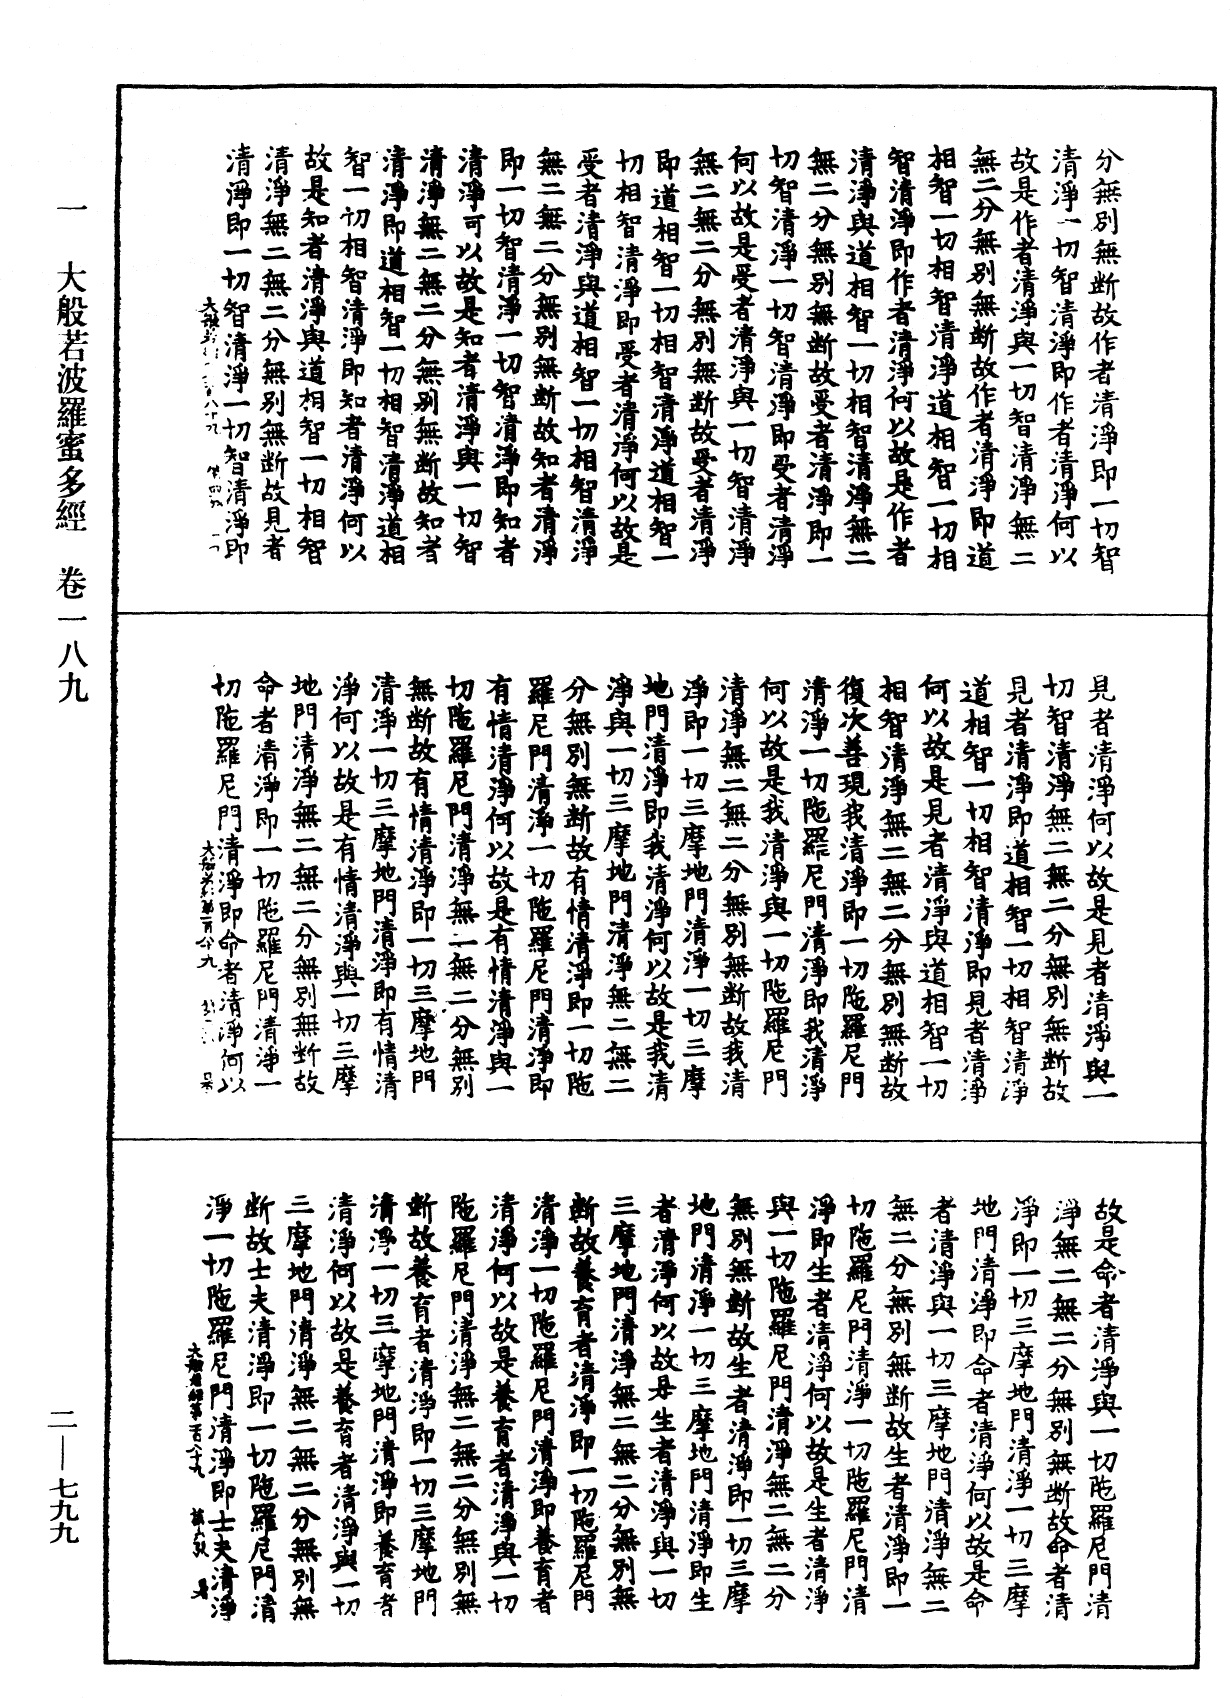 分無別無断故作者清淨即一切智
清淨一切智清淨即作者清淨何以
故是作者清淨與一切智清淨無二
無二分無別無断故作者清淨即道
相智一切相智清淨道相智一切相
智清淨即作者清淨何以故是作者
清淨與道相智一切相智清淨無二
無二分無別無断故受者清淨即一
切智清淨一切智清淨即受者清淨
何以故是受者清淨與一切智清淨
無二無二分無別無断故受者清淨
即道相智一切相智清淨道相智一
切相智清淨即受者清淨何以故是
受者清淨與道相智一切相智清淨
無二無二分無別無断故知者清淨
即一切智清淨一切智清淨即知者
清淨可以故是知者清淨與一切智
清淨無二無二分無別無断故知者
清淨即道相智一切相智清淨道相
智一切相智清淨即知者清淨何以
故是知者清淨與道相智一切相智
清淨無二無二分無別無断故見者
清淨即一切智清淨一切智清淨即
見者清淨何以故是見者清淨與一
切智清淨無二無二分無別無断故
見者清淨即道相智一切相智清淨
道相智一切相智清淨即見者清淨
何以故是見者清淨與道相智一切
相智清淨無二無二分無別無断故
復次善現我清淨即一切陁羅尼門
清淨一切陁羅尼門清淨即我清淨
何以故是我清淨與一切陁羅尼門
清淨無二無二分無別無断故我清
淨即一切三摩地門清淨一切三摩
地門清淨即我清淨何以故是我清
淨與一切三摩地門清淨無二無二
分無別無断故有情清淨即一切陁
羅尼門清淨一切陁羅尼門清淨即
有情清淨何以故是有情清淨與一
切陁羅尼門清淨無二無二分無別
無断故有情清淨即一切三摩地門
清淨一切三摩地門清淨即有情清
淨何以故是有情清淨與一切三摩
地門清淨無二無二分無別無断故
命者清淨即一切陁羅尼門清淨一
切陁羅尼門清淨即命者清淨何以
大般若經第一百八十九
故是命者清淨與一切陁羅尼門清
淨無二無二分無別無断故命者清
淨即一切三摩地門清淨一切三摩
地門清淨即命者清淨何以故是命
者清淨與一切三摩地門清淨無二
無二分無別無断故生者清淨即一
切陁羅尼門清淨一切陁羅尼門清
淨即生者清淨何以故是生者清淨
與一切陁羅尼門清淨無二無二分
無別無断故生者清淨即一切三摩
地門清淨一切三摩地門清淨即生
者清淨何以故是生者清淨與一切
三摩地門清淨無二無二分無別無
断故養育者清淨即一切陁羅尼門
清淨一切陁羅尼門清淨即養育者
清淨何以故是養育者清淨與一切
陁羅尼門清淨無二無二分無別無
断故養育者清淨即一切三摩地門
清淨一切三摩地門清淨即養育者
清淨何以故是養育者清淨與一切
三摩地門清淨無二無二分無別無
断故士夫清淨即一切陁羅尼門清
淨一切陁羅尼門清淨即士夫清淨
大般若經第一百八十九
一 大般若波羅蜜多經 卷一八九
二—七九九